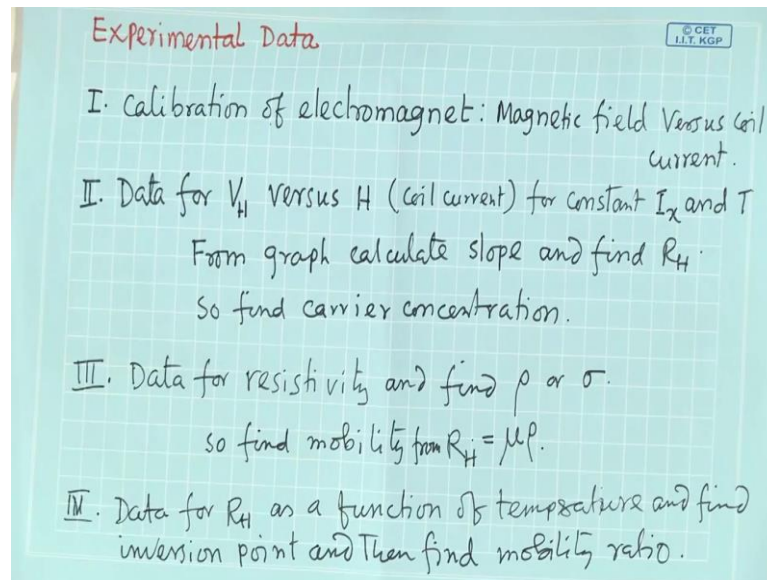 Experimental Data
© CET
I.I.T. KGP
I. Calibration of electromagnet: Magnetic field Versus coil
current.
II. Data for V_H versus H (coil current) for constant I_x and T
From graph calculate slope and find R_H.
So find carrier concentration.
III. Data for resistivity and find ρ or σ.
so find mobility from R_H = μρ.
IV. Data for R_H as a function of temperature and find
inversion point and Then find mobility ratio.